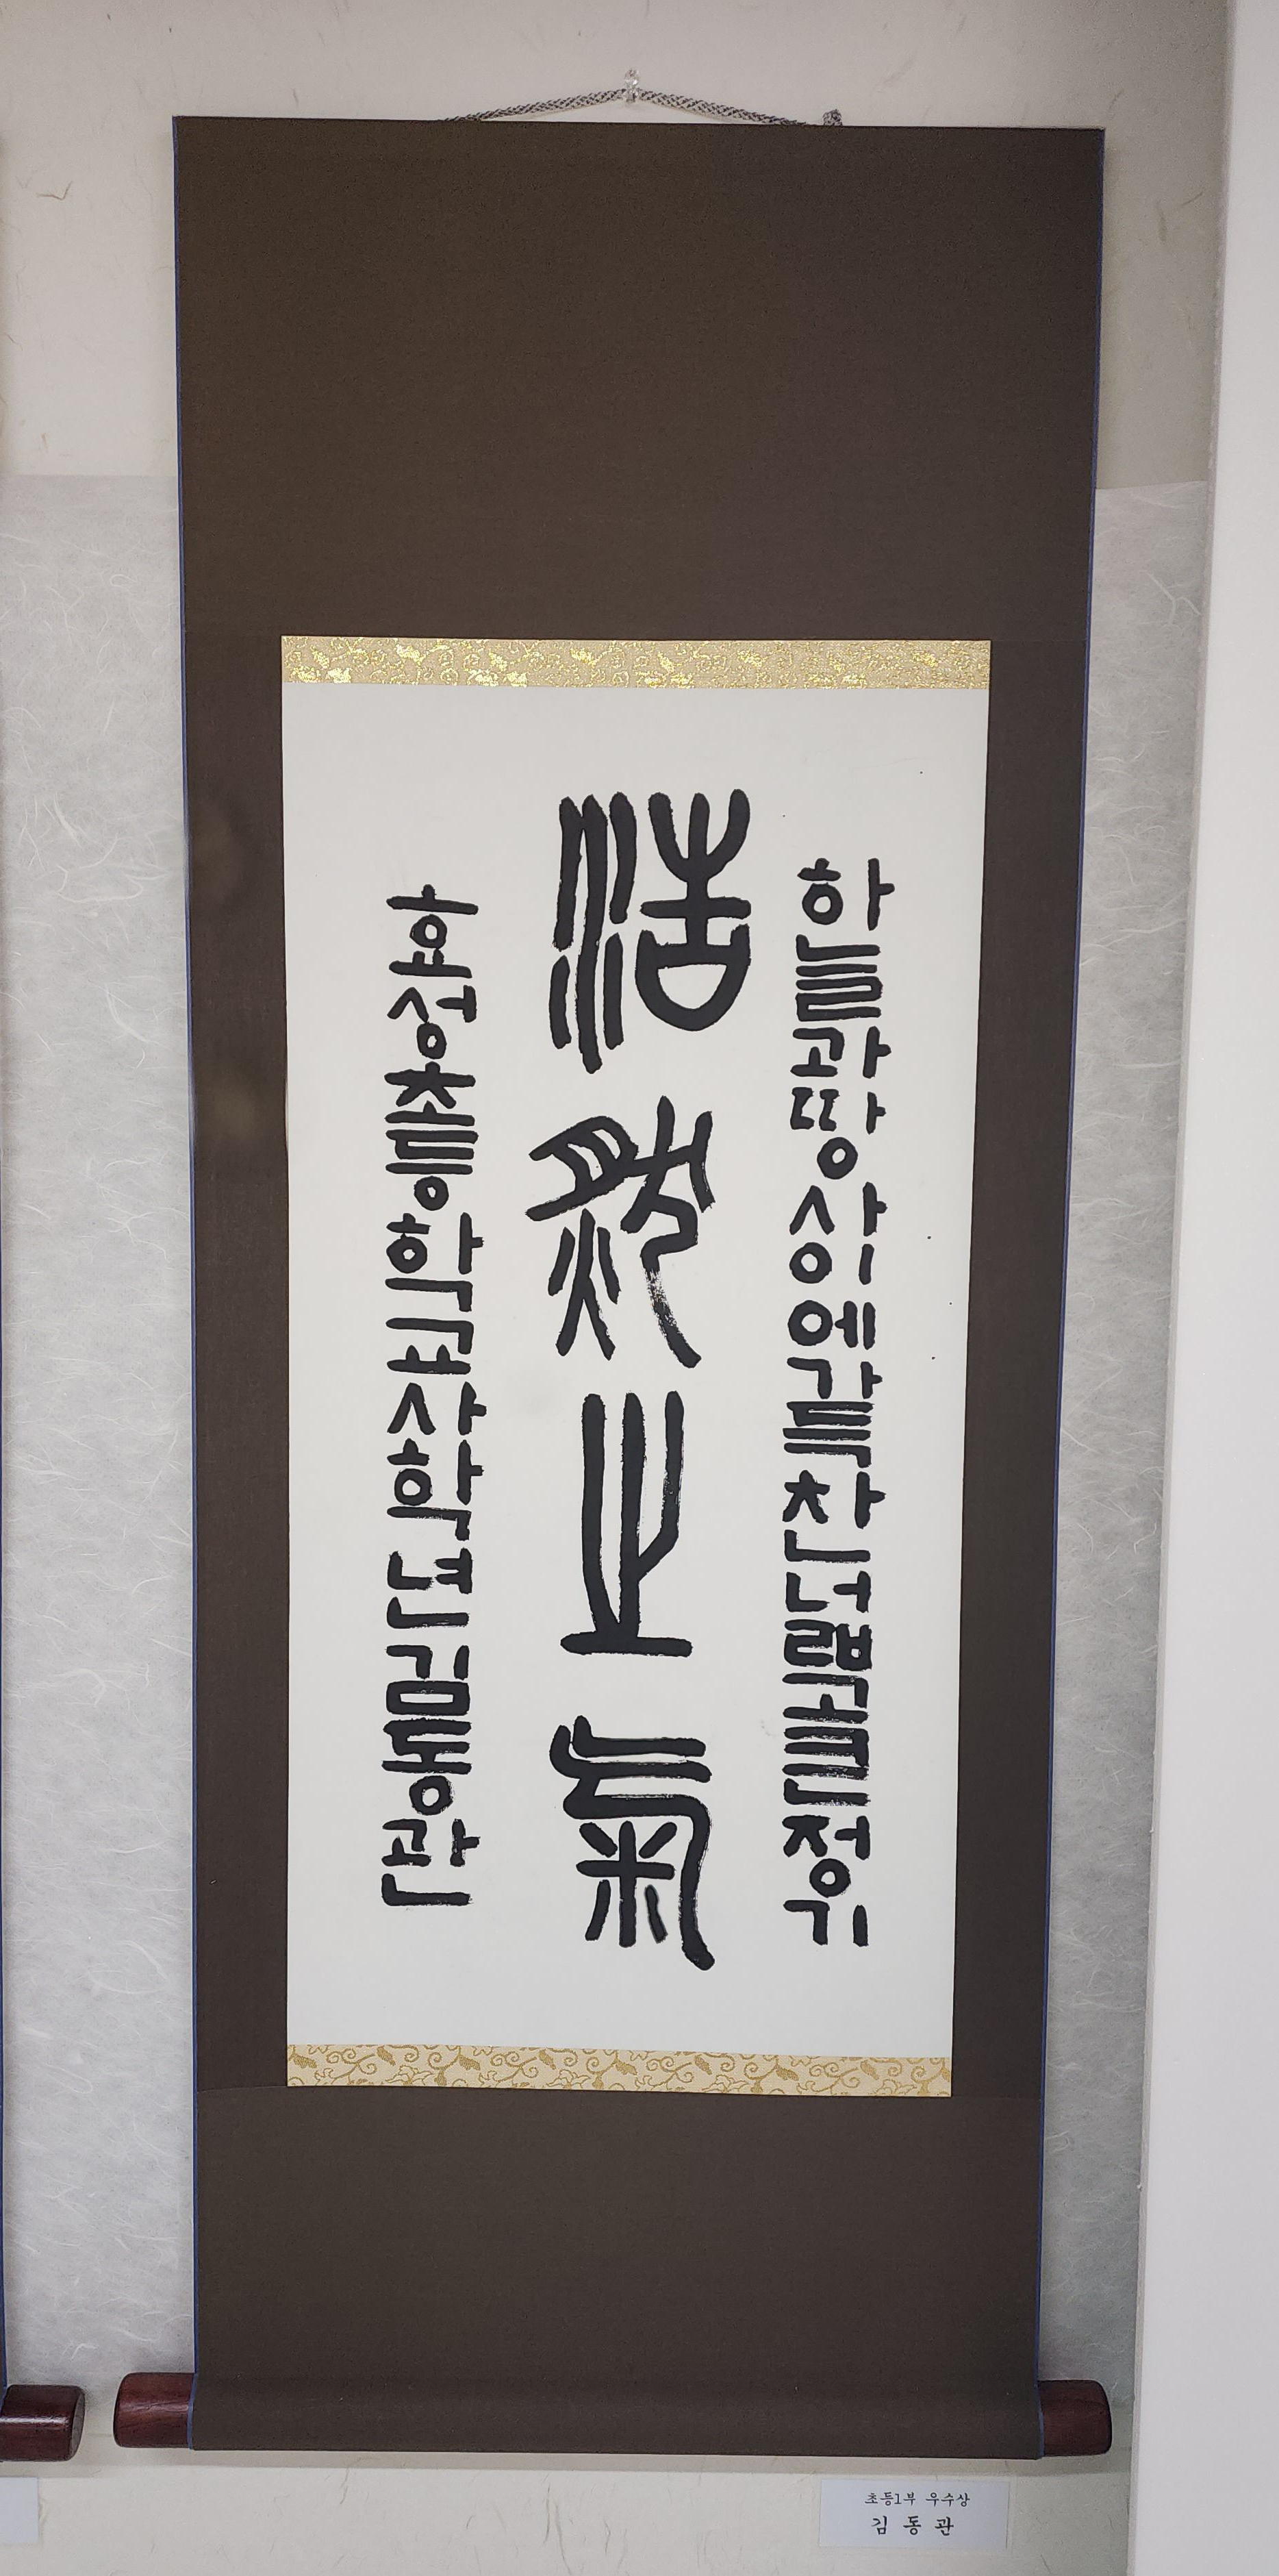 하늘과땅사이에가득찬넓고큰정기
浩然之氣
효성초등학교사학년김동관
초등1부 우수상
김 동 관